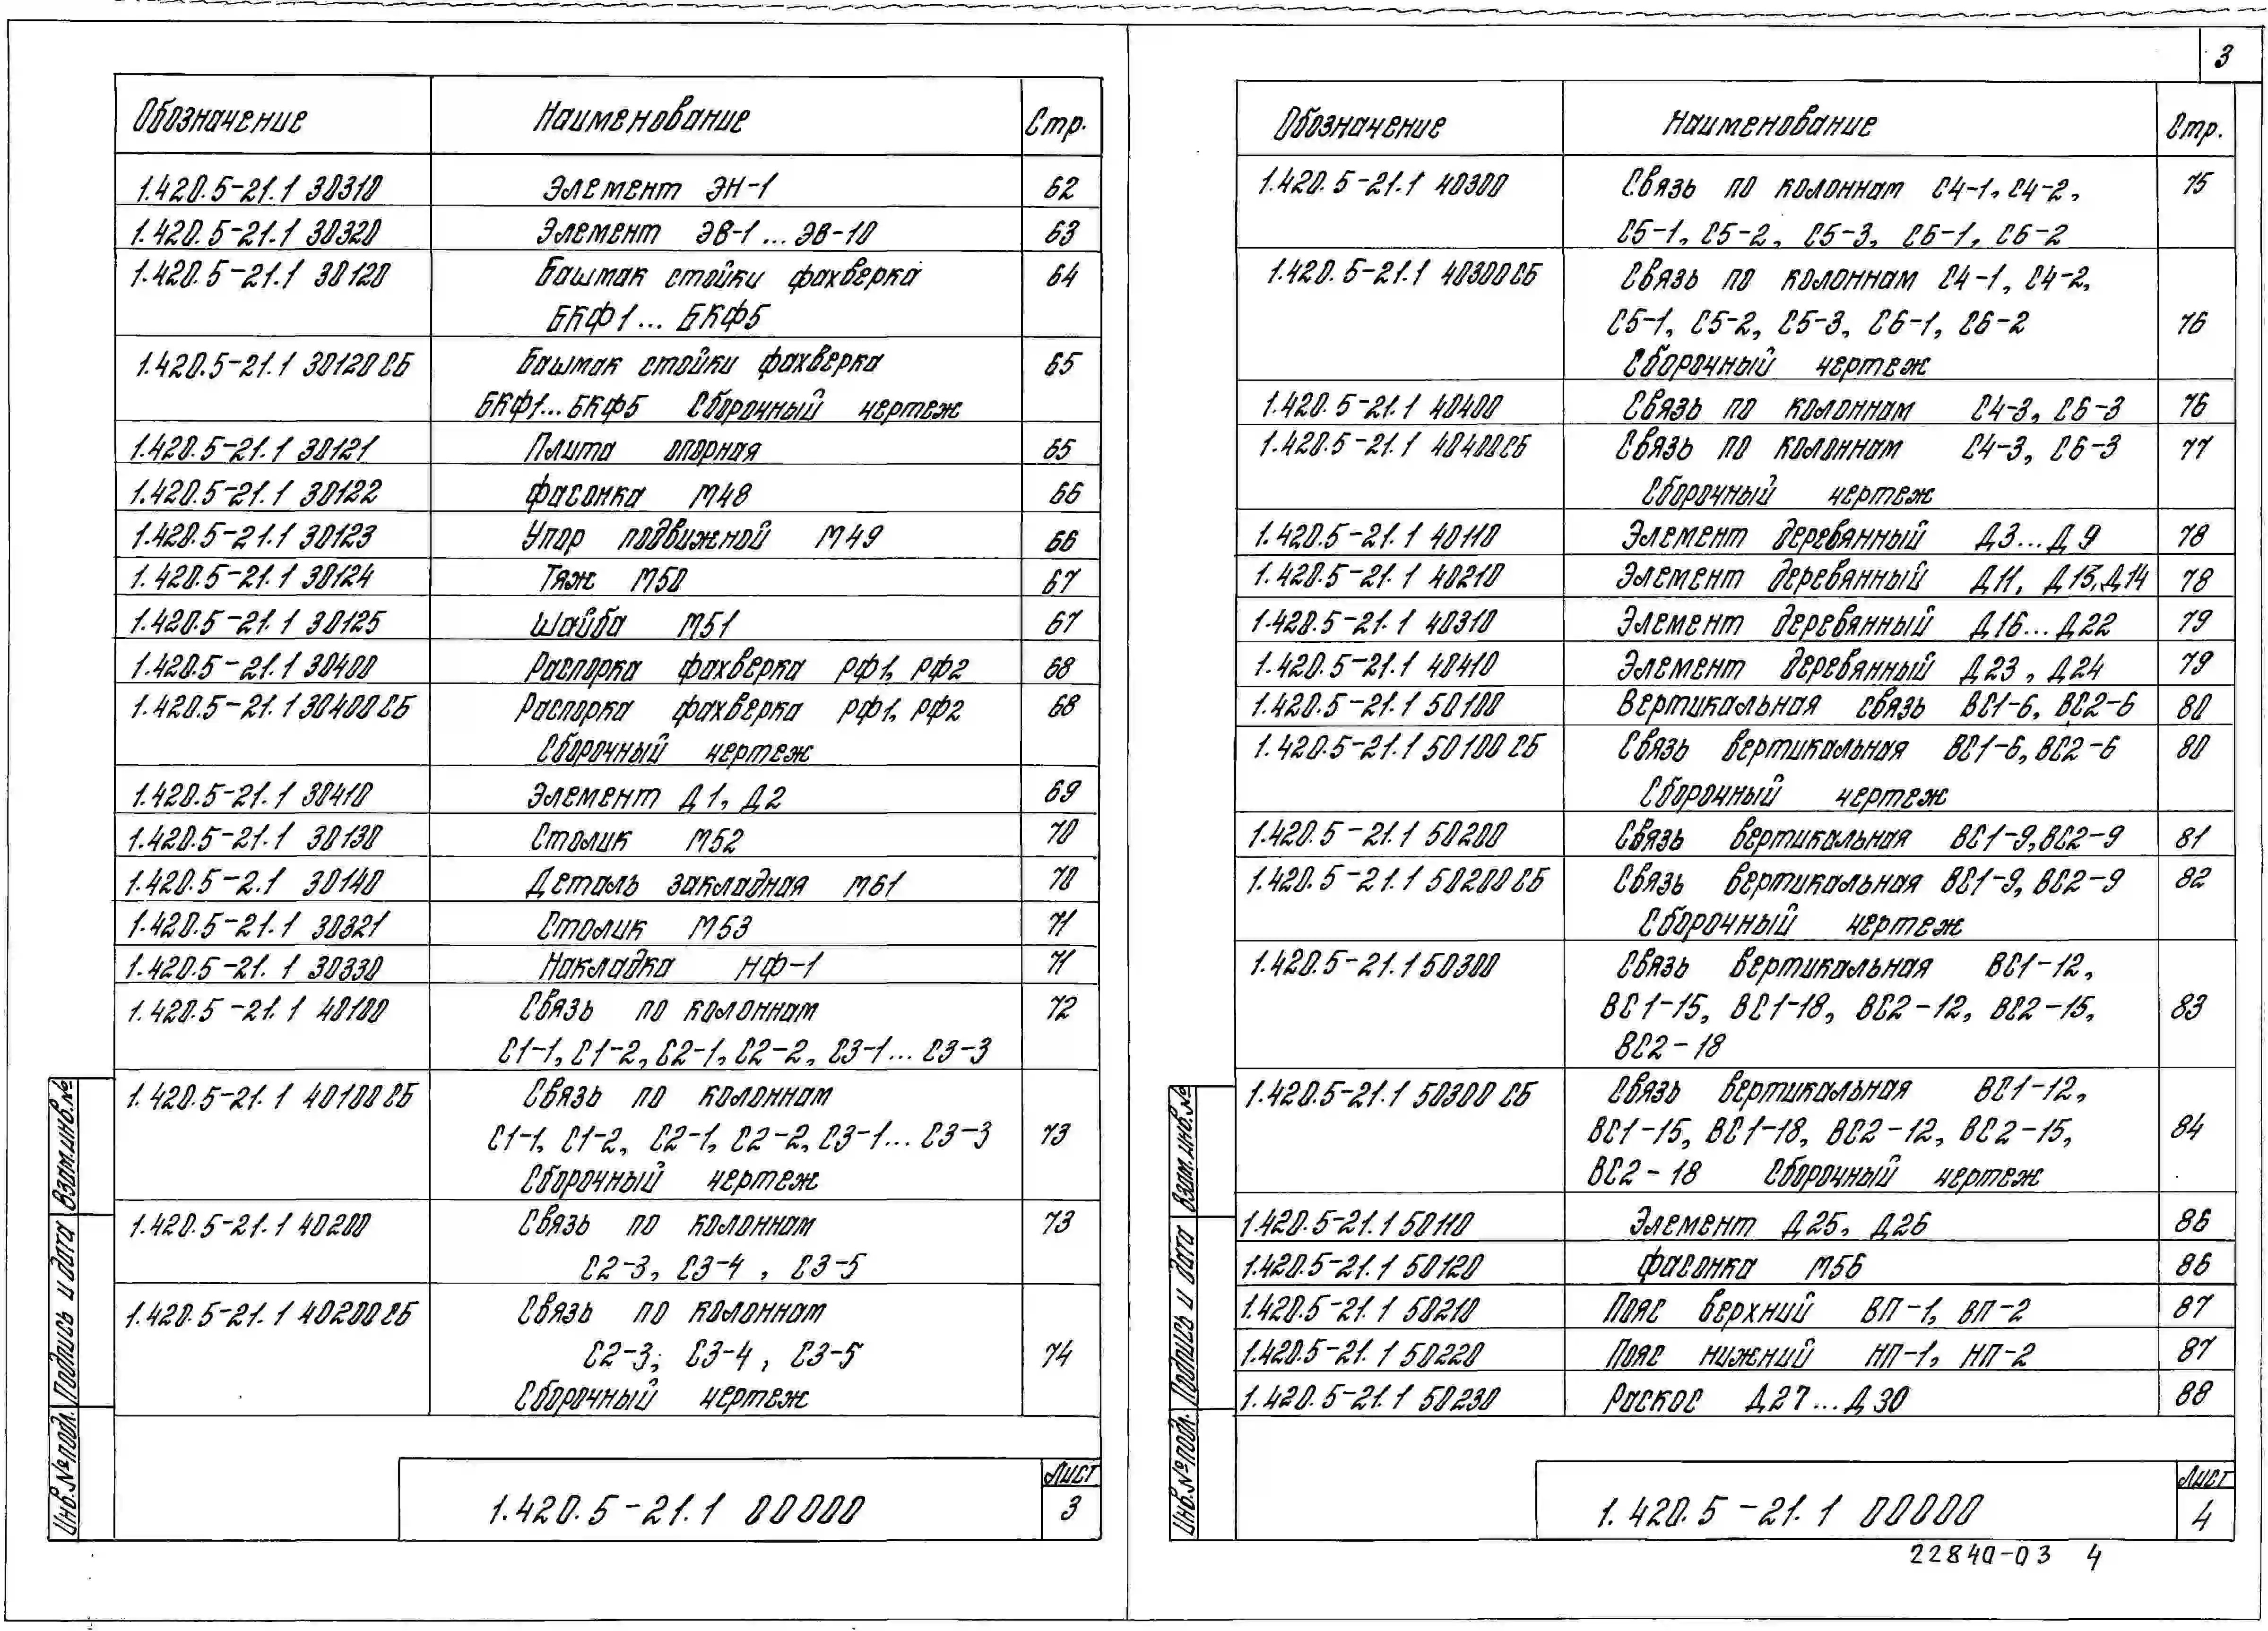 3
Обозначение Наименование Стр.
1.420.5-21.1 30310 Элемент ЭН-1 62
1.420.5-21.1 30320 Элемент ЭВ-1...ЭВ-10 63
1.420.5-21.1 30120 Башмак стойки фахверка 64
БКФ1... БКФ5
1.420.5-21.1 30120СБ Башмак стойки фахверка 65
БКФ1...БКФ5 Сборочный чертеж
1.420.5-21.1 30121 Плита опорная 65
1.420.5-21.1 30122 Фасонка М48 66
1.420.5-21.1 30123 Упор подвижной М49 66
1.420.5-21.1 30124 Тяж М50 67
1.420.5-21.1 30125 Шайба М51 67
1.420.5-21.1 30400 Распорка фахверка РФ1, РФ2 68
1.420.5-21.1 30400СБ Распорка фахверка РФ1, РФ2 68
Сборочный чертеж
1.420.5-21.1 30410 Элемент Д1, Д2 69
1.420.5-21.1 30130 Столик М52 70
1.420.5-2.1 30140 Деталь закладная М61 70
1.420.5-21.1 30321 Столик М53 71
1.420.5-21.1 30330 Накладка НФ-1 71
1.420.5-21.1 40100 Связь по колоннам 72
С1-1, С1-2, С2-1, С2-2, С3-1... С3-3
1.420.5-21.1 40100СБ Связь по колоннам
С1-1, С1-2, С2-1, С2-2, С3-1... С3-3 73
Сборочный чертеж
1.420.5-21.1 40200 Связь по колоннам 73
С2-3, С3-4, С3-5
1.420.5-21.1 40200СБ Связь по колоннам
С2-3; С3-4, С3-5 74
Сборочный чертеж
Инв.№подл. Подпись и дата Взам.инв.№
1.420.5-21.1 00000
Лист
3
Обозначение Наименование Стр.
1.420.5-21.1 40300 Связь по колоннам С4-1, С4-2, 75
С5-1, С5-2, С5-3, С6-1, С6-2
1.420.5-21.1 40300СБ Связь по колоннам С4-1, С4-2,
С5-1, С5-2, С5-3, С6-1, С6-2 76
Сборочный чертеж
1.420.5-21.1 40400 Связь по колоннам С4-3, С6-3 76
1.420.5-21.1 40400СБ Связь по колоннам С4-3, С6-3 77
Сборочный чертеж
1.420.5-21.1 40110 Элемент деревянный Д3...Д9 78
1.420.5-21.1 40210 Элемент деревянный Д11, Д13,Д14 78
1.420.5-21.1 40310 Элемент деревянный Д16...Д22 79
1.420.5-21.1 40410 Элемент деревянный Д23, Д24 79
1.420.5-21.1 50100 Вертикальная связь ВС1-6, ВС2-6 80
1.420.5-21.1 50100СБ Связь вертикальная ВС1-6, ВС2-6 80
Сборочный чертеж
1.420.5-21.1 50200 Связь вертикальная ВС1-9,ВС2-9 81
1.420.5-21.1 50200СБ Связь вертикальная ВС1-9, ВС2-9 82
Сборочный чертеж
1.420.5-21.1 50300 Связь вертикальная ВС1-12,
ВС1-15, ВС1-18, ВС2-12, ВС2-15, 83
ВС2-18
1.420.5-21.1 50300 СБ Связь вертикальная ВС1-12,
ВС1-15, ВС1-18, ВС2-12, ВС2-15, 84
ВС2-18 Сборочный чертеж
1.420.5-21.1 50110 Элемент Д25, Д26 86
1.420.5-21.1 50120 Фасонка М56 86
1.420.5-21.1 50210 Пояс верхний ВП-1, ВП-2 87
1.420.5-21.1 50220 Пояс нижний НП-1, НП-2 87
1.420.5-21.1 50230 Раскос Д27...Д30 88
Инв.№подл. Подпись и дата Взам.инв.№
1.420.5-21.1 00000
Лист
4
22840-03 4